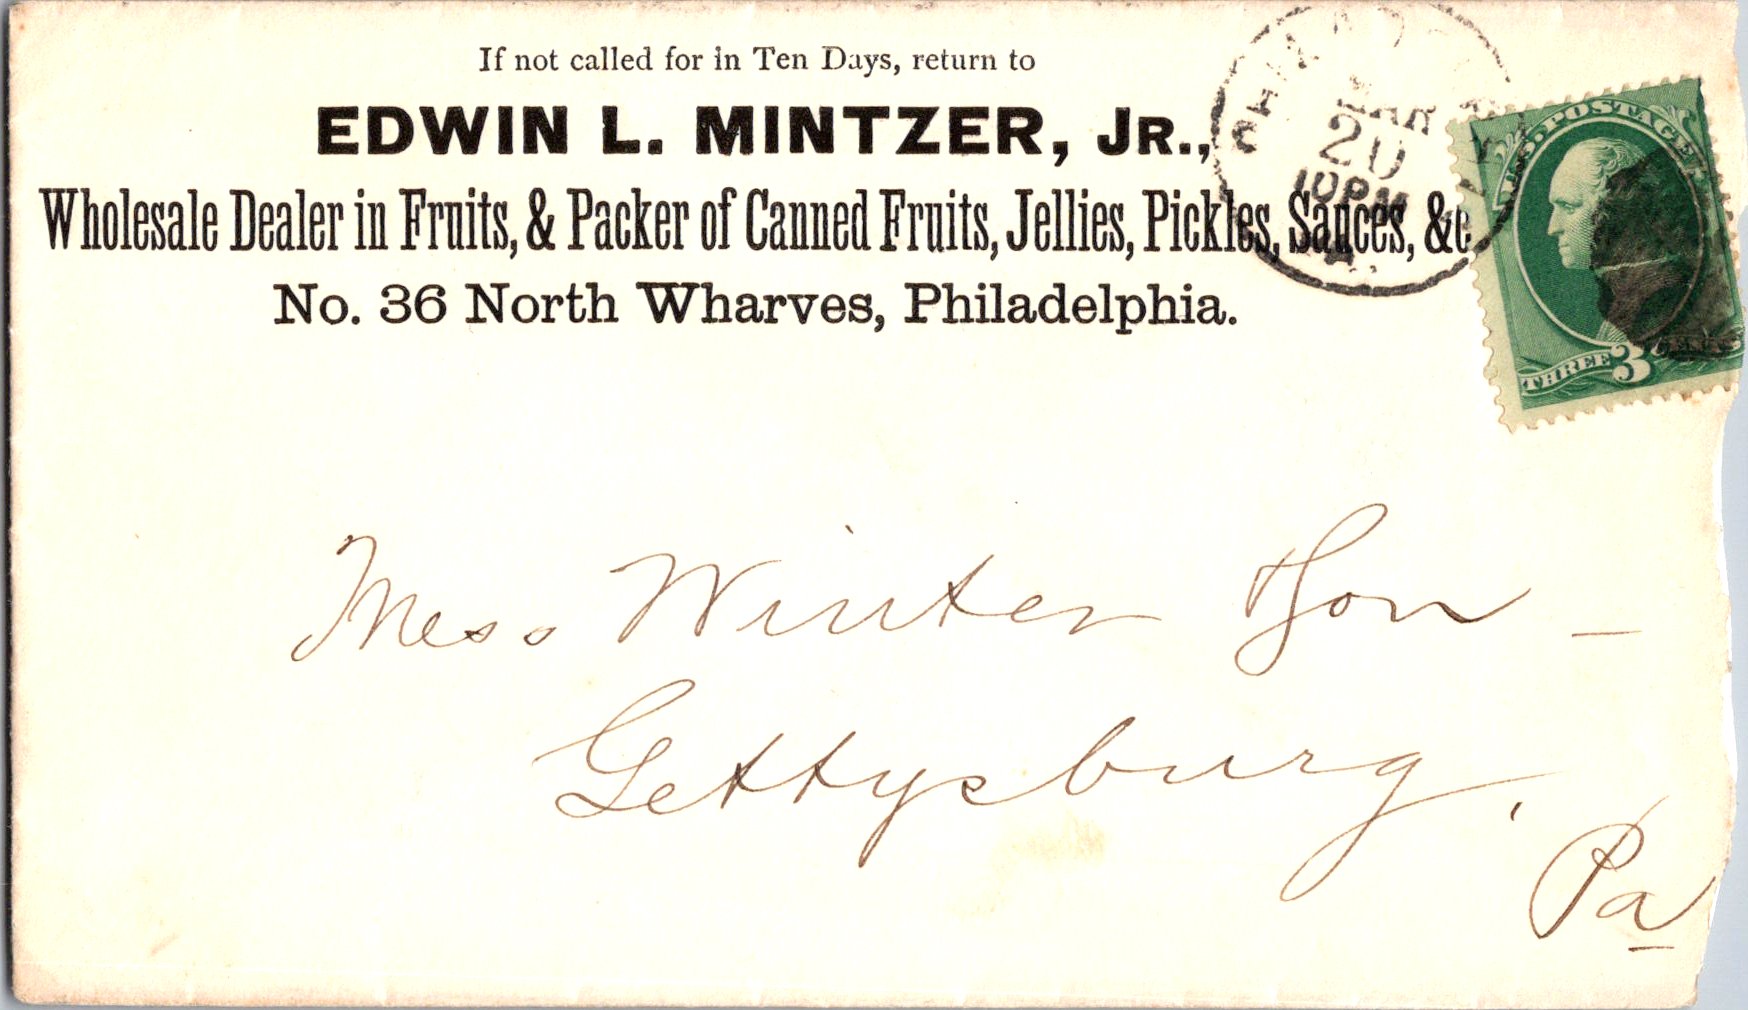 If not called for in Ten Days, return to
EDWIN L. MINTZER, JR.,
Wholesale Dealer in Fruits, & Packer of Canned Fruits, Jellies, Pickles, Sauces, &c
No. 36 North Wharves, Philadelphia.
MAR
20
10PM
PA.
U.S. POSTAGE
THREE 3 CENTS
Mess Winter & Son –
Gettysburg,
Pa